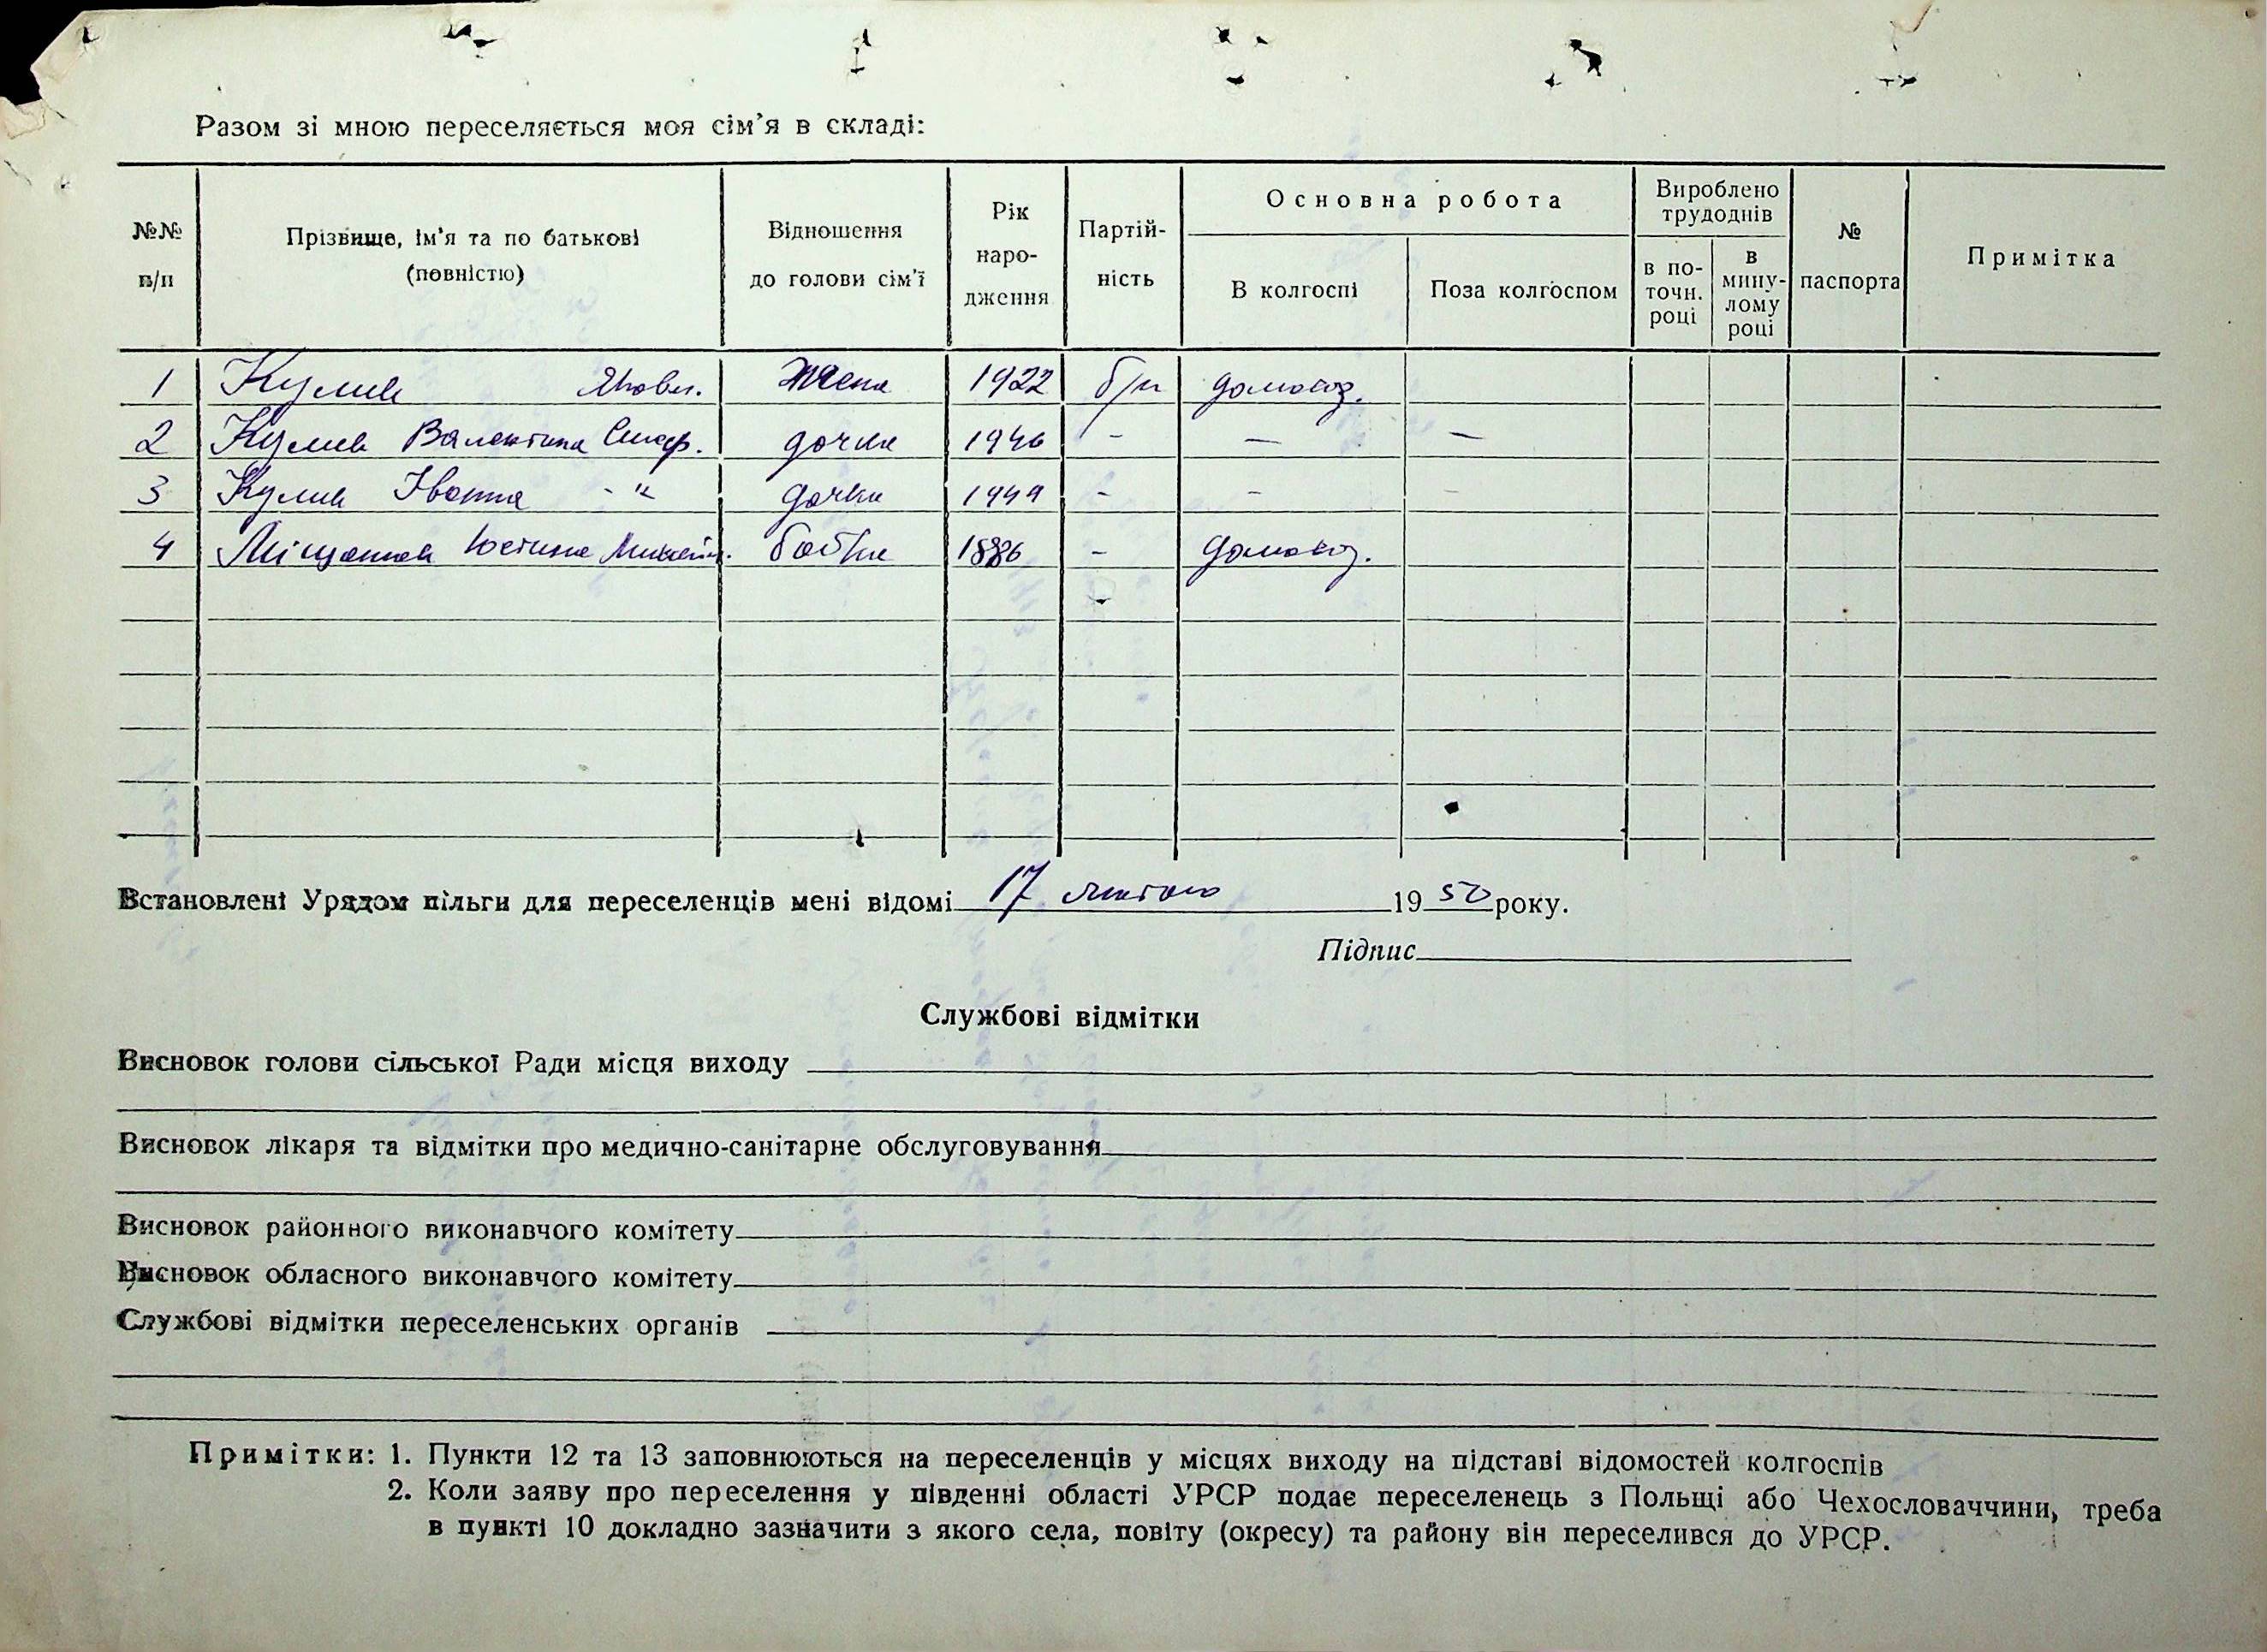 Разом зі мною переселяється моя сім'я в складі:
№№ п/п
Прізвище, ім'я та по батькові (повністю)
Відношення до голови сім'ї
Рік народження
Партійність
Основна робота
В колгоспі
Поза колгоспом
Вироблено трудоднів
в поточн. році
в минулому році
№ паспорта
Примітка
1 Яковл. Жена 1922 б/п домогоз.
2 Валентина дочка 1946 - - -
3 Іванна - " дочка 1949 - - -
4 Юстина 1886 - домогоз.
Встановлені Урядом пільги для переселенців мені відомі 17 лютого 1950 року.
Підпис
Службові відмітки
Висновок голови сільської Ради місця виходу
Висновок лікаря та відмітки про медично-санітарне обслуговування
Висновок районного виконавчого комітету
Висновок обласного виконавчого комітету
Службові відмітки переселенських органів
Примітки: 1. Пункти 12 та 13 заповнюються на переселенців у місцях виходу на підставі відомостей колгоспів
2. Коли заяву про переселення у південні області УРСР подає переселенець з Польщі або Чехословаччини, треба
в пункті 10 докладно зазначити з якого села, повіту (окресу) та району він переселився до УРСР.